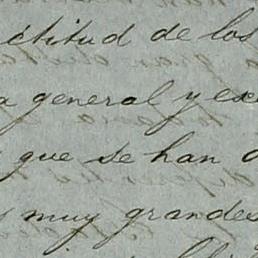 ctitud de los
general y exc
que se han
muy grandes